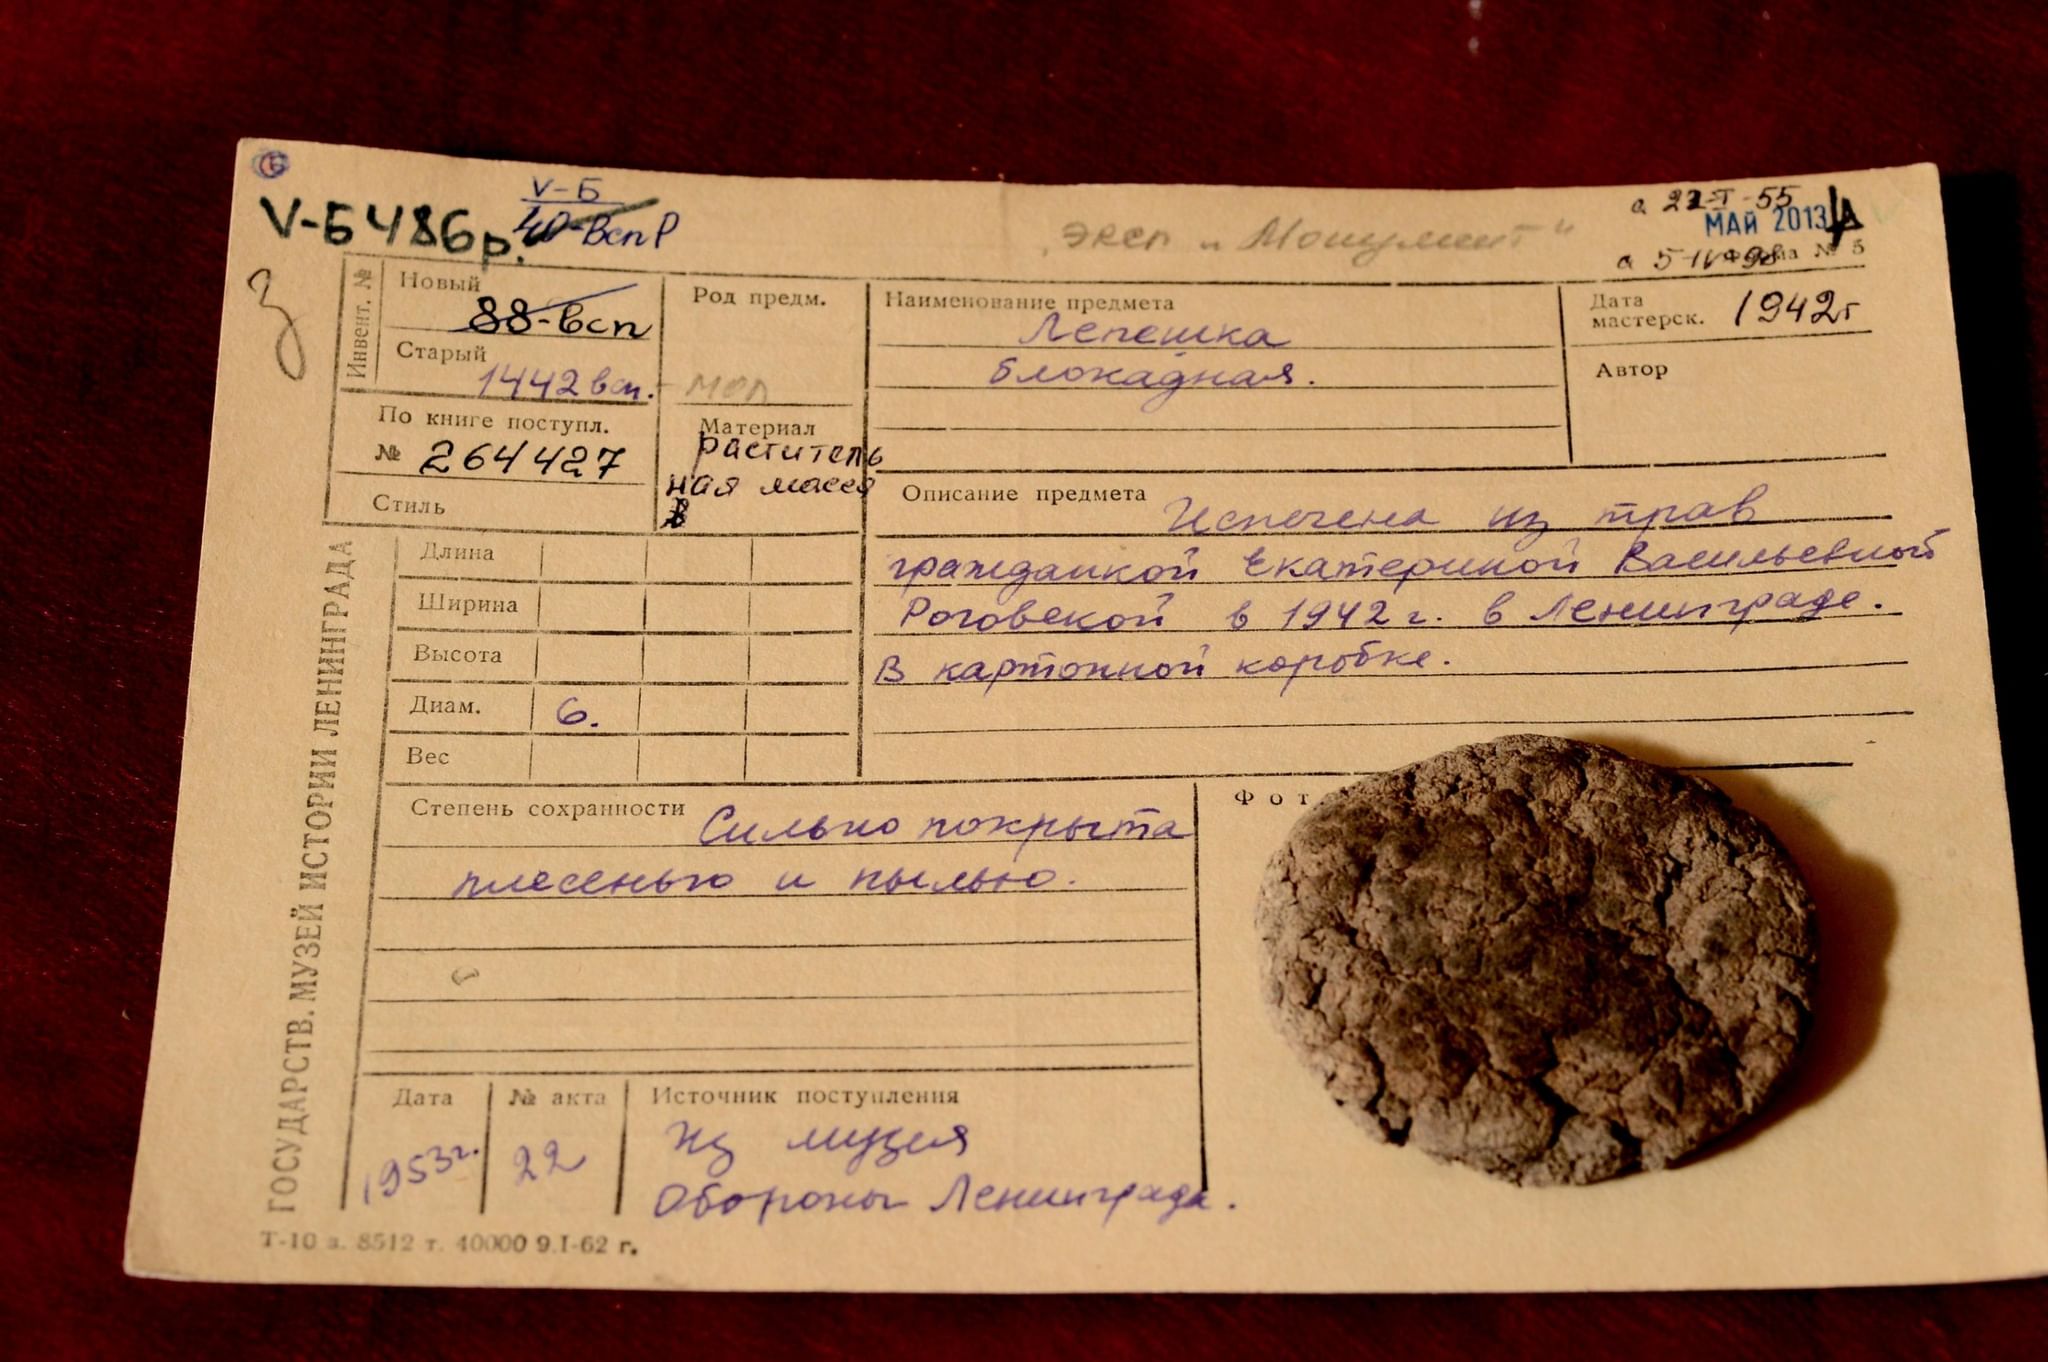 V-Б 486р.
V-Б
40-Всп Р
Эксп „Монумент"
а 22-I-55
МАЙ 2013
а 5-IV-98
Форма № 5
Инвент. №
Новый
88-всп
Старый
1442 всп.
По книге поступл.
№ 264427
Стиль
Род предм.
Материал
раститель
ная масса
Наименование предмета
Лепешка
блокадная.
Дата
мастерск. 1942г
Автор
Описание предмета Испечена из трав
гражданкой Екатериной Васильевной
Роговской в 1942 г. в Ленинграде.
В картонной коробке.
Длина
Ширина
Высота
Диам. 6.
Вес
Степень сохранности Сильно покрыта
плесенью и пылью.
Фот
Дата
1953г.
№ акта
22
Источник поступления
Из музея
Обороны Ленинграда.
ГОСУДАРСТВ. МУЗЕЙ ИСТОРИИ ЛЕНИНГРАДА
Т-10 з. 8512 т. 40000 9.I-62 г.